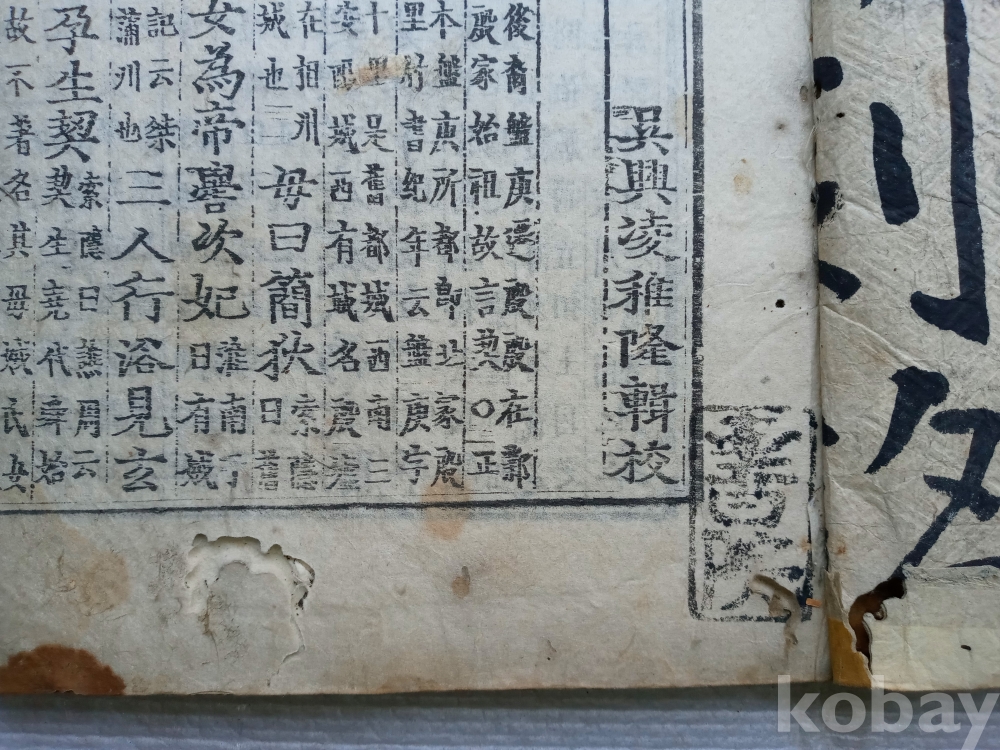 吳興凌稚隆輯校
後裔盤庚遷殷殷在鄴
殷家始祖故言契○正
木盤庚所都卽北家殷
里竹書紀年云盤庚
十里是舊都城西南三
安陽城西有城名殷墟
在相州
城也
母曰簡狄
索隱
曰舊
女為帝嚳次妃
淮南子
曰有娀
記云桀
蒲州也
三人行浴見玄
孕生契
索隱曰譙周云
契生堯代舜始
故不著名其母娀氏女
書院
kobay